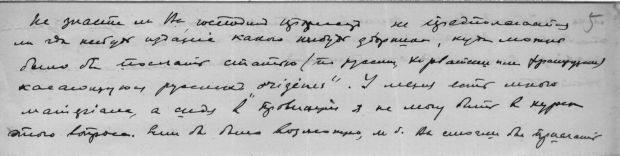 Не знаете ли Вы господин профессор не предполагается 5
ли где нибудь издание какого нибудь сборника, куда можно
было бы послать статью (по русски, хорватски или французски)
касающуюся русских "origines". У меня есть много
материала, а сидя в "провинции" я не могу быть в курсе
этого вопроса. Если бы было возможно, м. б. Вы смогли бы прислать